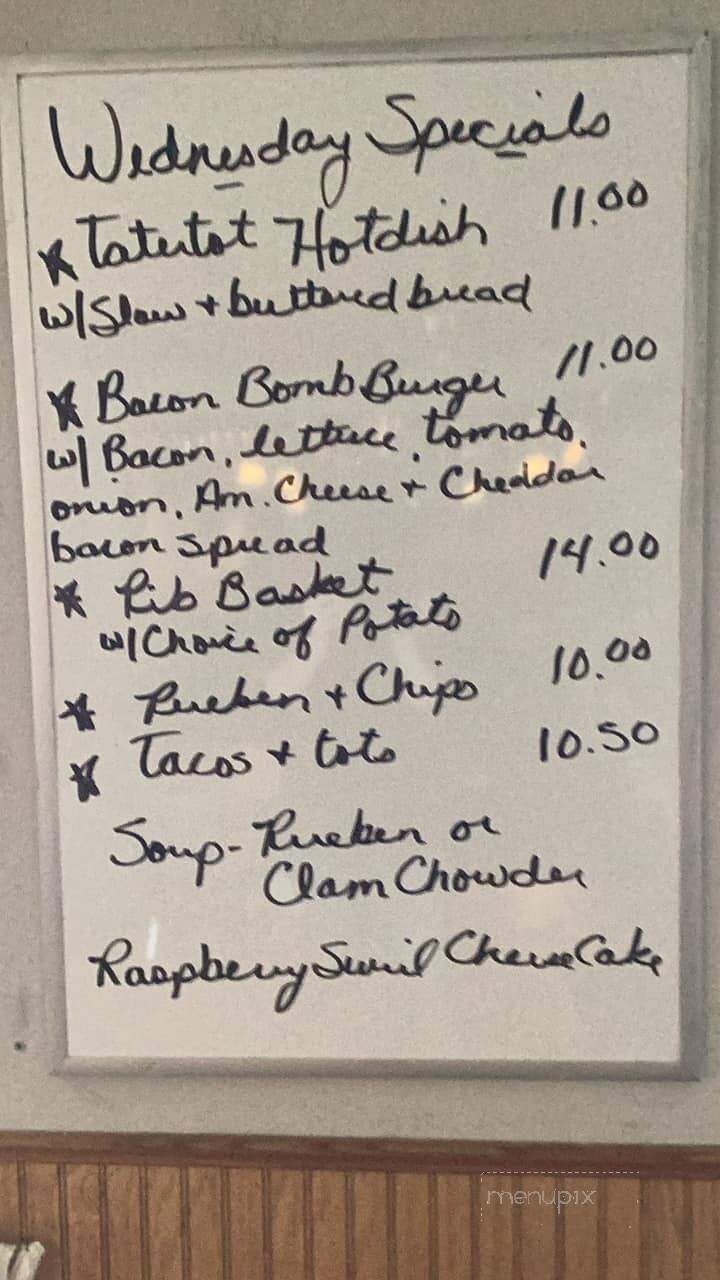 Wednesday Specials
* Tatertot Hotdish 11.00
w/Slaw + buttered bread
* Bacon Bomb Burger 11.00
w/ Bacon, lettuce, tomato,
onion, Am. Cheese + Cheddar
bacon spread
* Rib Basket 14.00
w/Choice of Potato
* Rueben + Chips 10.00
* Tacos + tots 10.50
Soup - Rueben or
Clam Chowder
Raspberry Swirl Cheese Cake
menupix